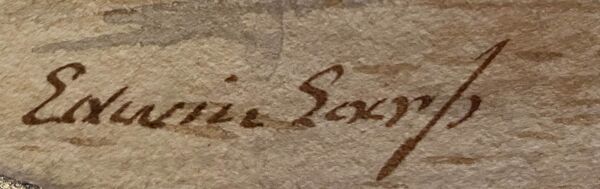 Edwin Earp